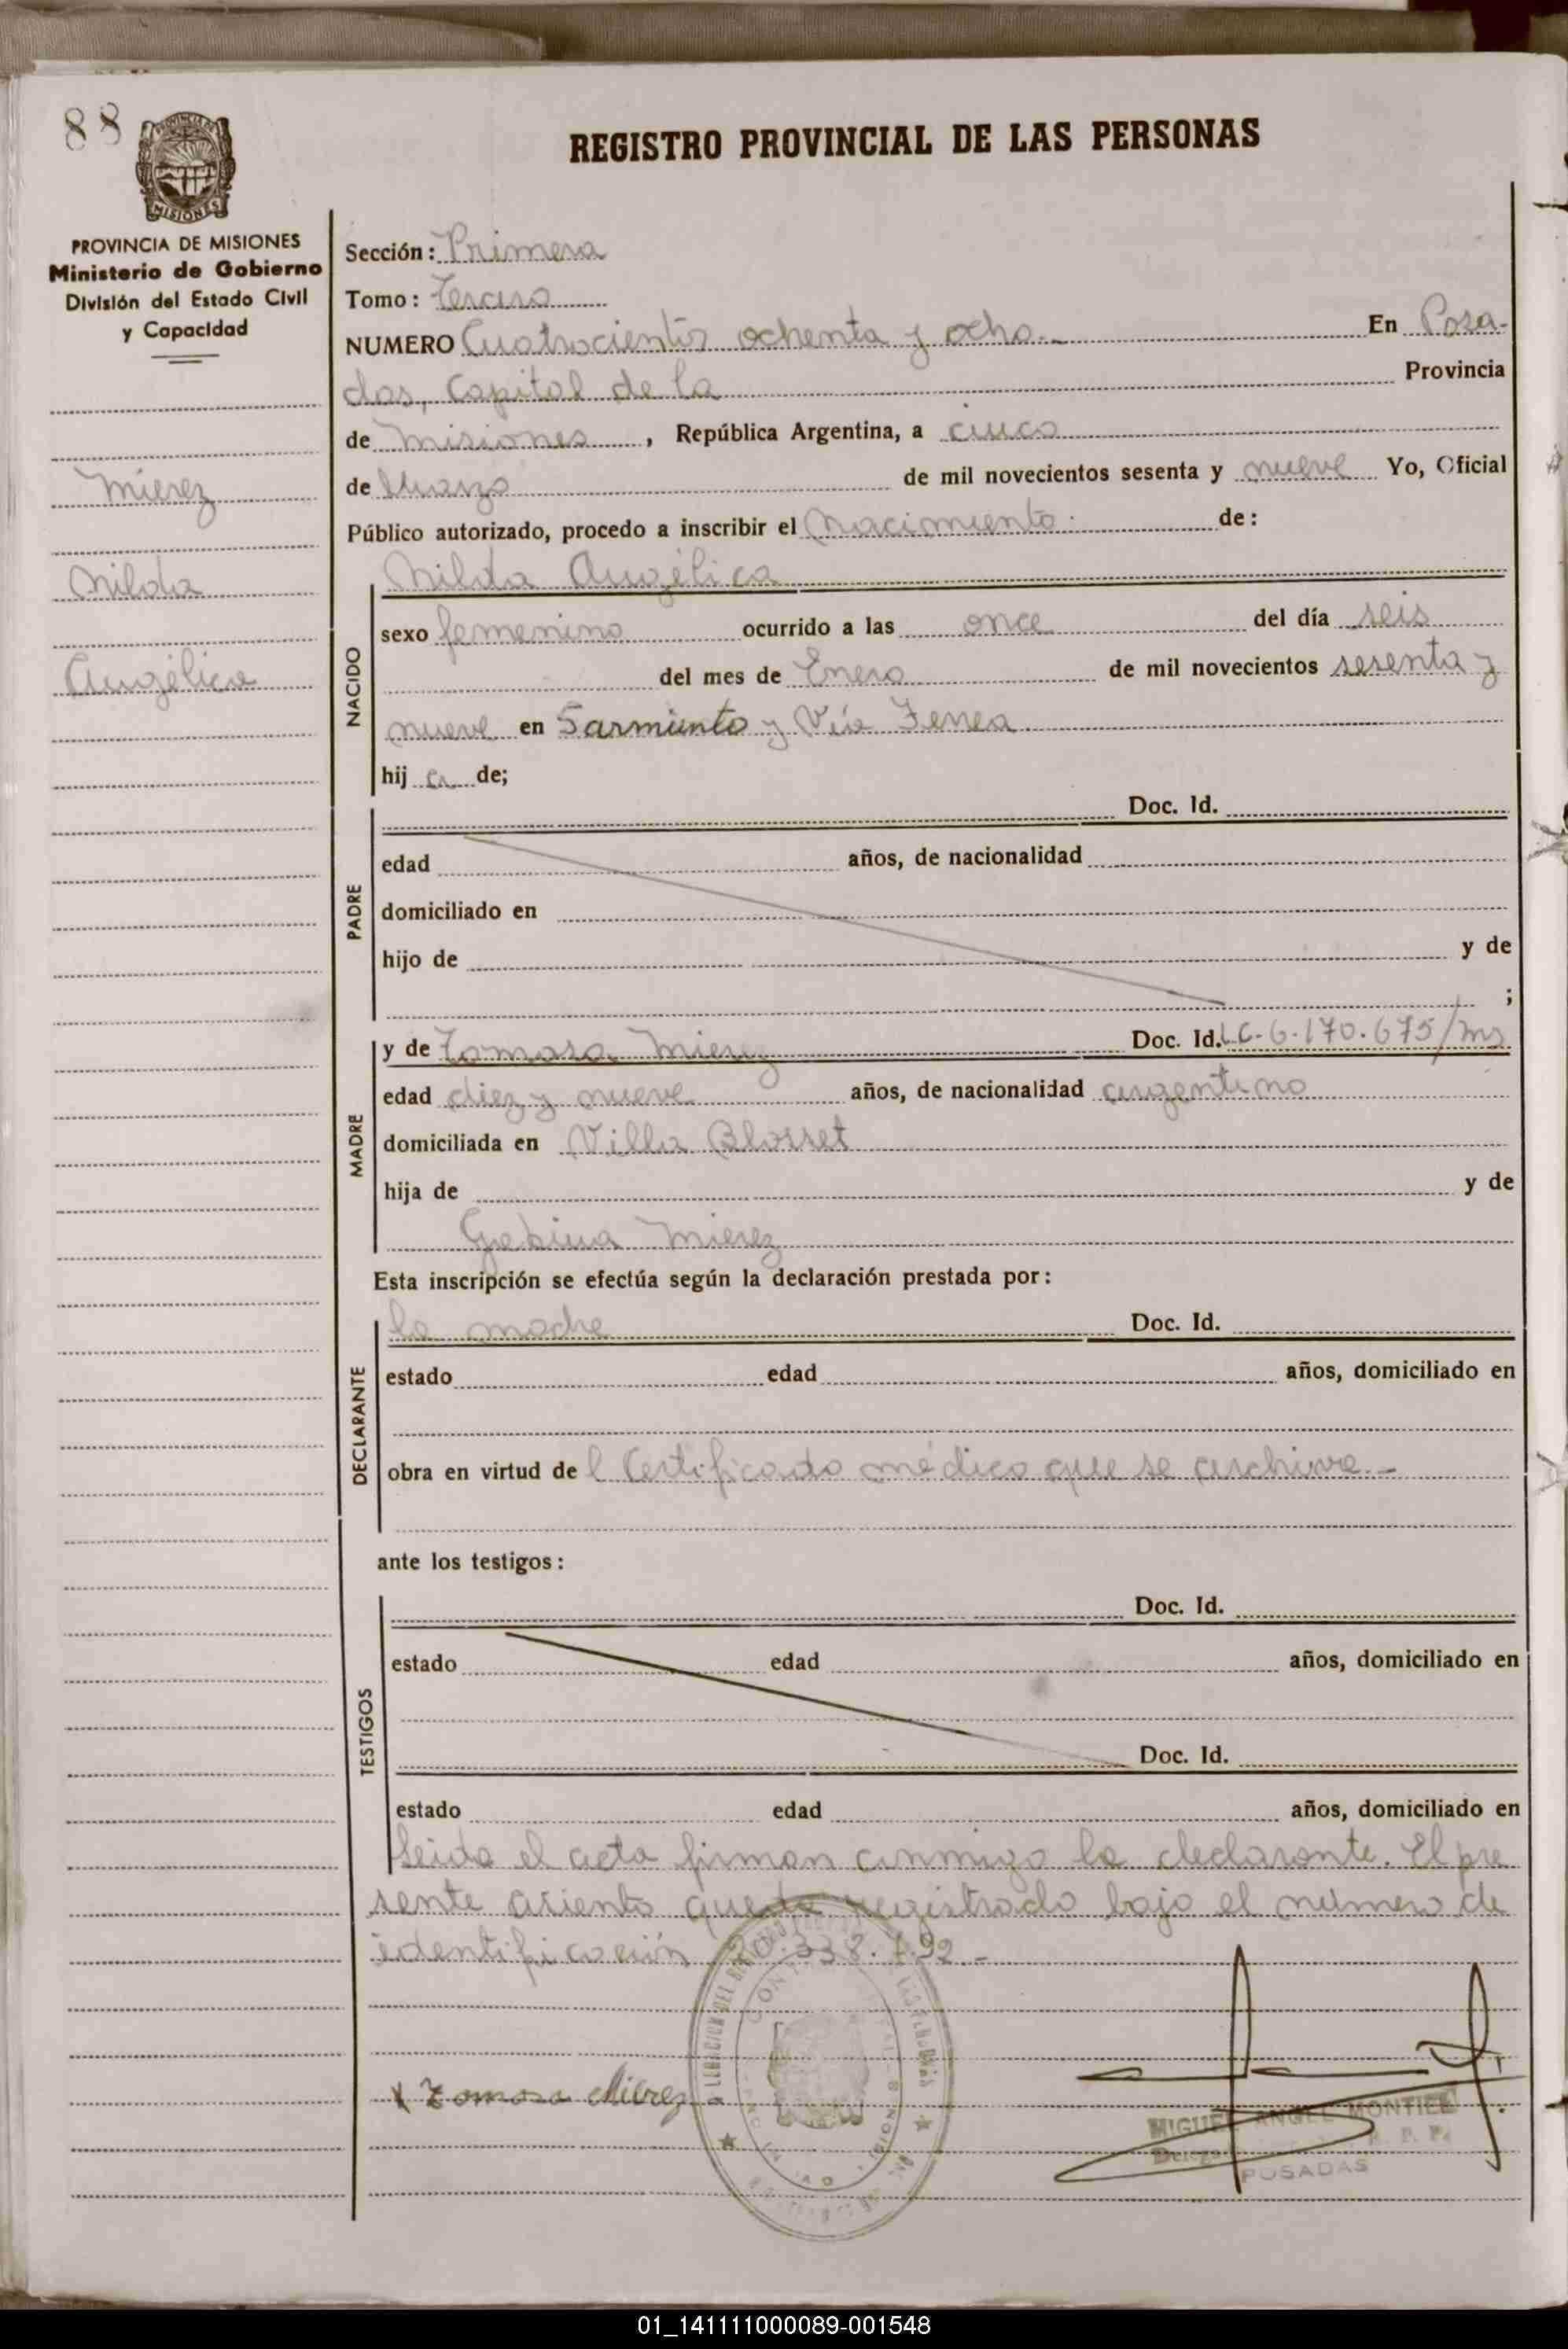 88
REGISTRO PROVINCIAL DE LAS PERSONAS
PROVINCIA DE MISIONES
Ministerio de Gobierno
División del Estado Civil
y Capacidad
Mierez
Nilda
Angélica
Sección: Primera
Tomo: Tercero
NUMERO Cuatrocientos ochenta y ocho.- En Posa-
das, Capital de la Provincia
de Misiones, República Argentina, a cinco
de Marzo de mil novecientos sesenta y nueve Yo, Oficial
Público autorizado, procedo a inscribir el Nacimiento. de:
Nilda Angélica
NACIDO
sexo femenino ocurrido a las once del día seis
del mes de Enero de mil novecientos sesenta y
nueve en Sarmiento y Vía Ferrea
hija de;
PADRE
Doc. Id.
edad años, de nacionalidad
domiciliado en
hijo de y de
;
MADRE
y de Tomasa Mierez Doc. Id. L.C. 6.170.675/ms
edad diez y nueve años, de nacionalidad argentina
domiciliada en Villa Blosset
hija de y de
Gabina Mierez
Esta inscripción se efectúa según la declaración prestada por:
DECLARANTE
la madre Doc. Id.
estado edad años, domiciliado en
obra en virtud del Certificado médico que se archiva.-
ante los testigos:
TESTIGOS
Doc. Id.
estado edad años, domiciliado en
Doc. Id.
estado edad años, domiciliado en
Leida el acta firman conmigo la declarante. El pre
sente asiento queda registrado bajo el número de
identificación 20.338.
Tomasa Mierez
MIGUEL ANGEL MONTIEL
POSADAS
01_141111000089-001548